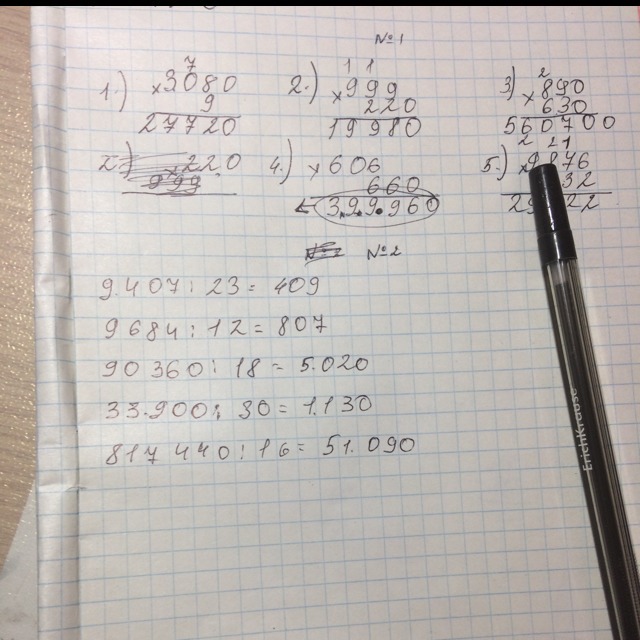 №1
1.) 7
×3080
9
27720
2.) 1 1
×999
220
19980
3) 2
×890
630
560700
220
999
4.) ×606
660
399960
5.) 2 21
×9876
32
№2
9.407:23=409
9684:12=807
90360:18=5.020
33.900:30=1.130
817440:16=51.090
ErichKrause